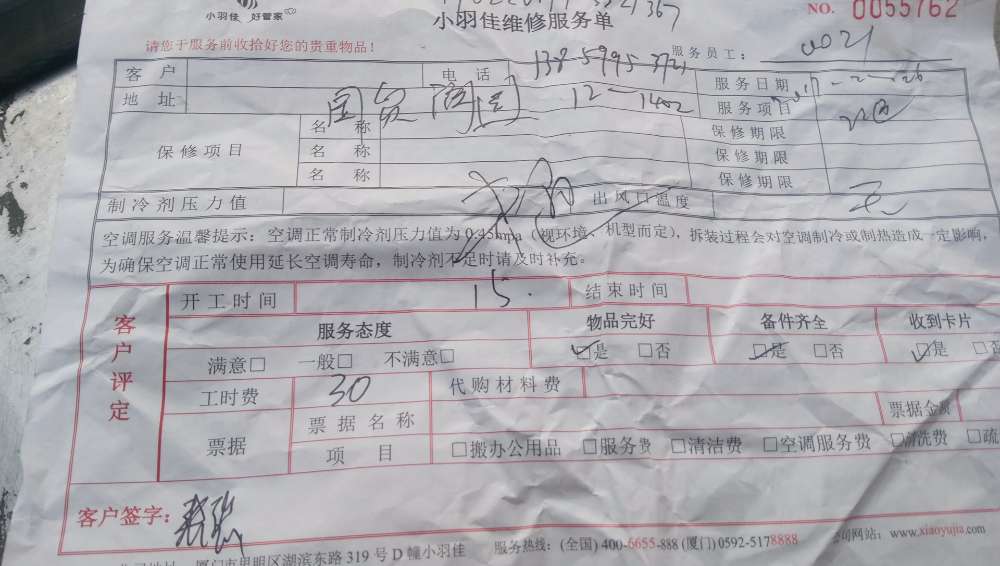 小羽佳 好管家
小羽佳维修服务单
NO. 0055762
请您于服务前收拾好您的贵重物品!
服务员工: 0021
客户 电话 服务日期
地址 12-1402 服务项目
保修项目 名称 保修期限
名称 保修期限
名称 保修期限
制冷剂压力值 出风口温度
空调服务温馨提示: 空调正常制冷剂压力值为0.45mpa (视环境、机型而定), 拆装过程会对空调制冷或制热造成一定影响,
为确保空调正常使用延长空调寿命, 制冷剂不足时请及时补充。
客户评定
开工时间 15. 结束时间
服务态度 物品完好 备件齐全 收到卡片
满意□ 一般□ 不满意□ ☑是 □否 ☑是 □否 ☑是 □否
工时费 30 代购材料费
票据 票据名称 票据金
项目 □搬办公用品 □服务费 □清洁费 □空调服务费 □清洗费 □疏
客户签字:
厦门市思明区湖滨东路 319 号 D 幢小羽佳 服务热线: (全国) 400-6655-888 (厦门) 0592-5178888 公司网站: www.xiaoyujia.com